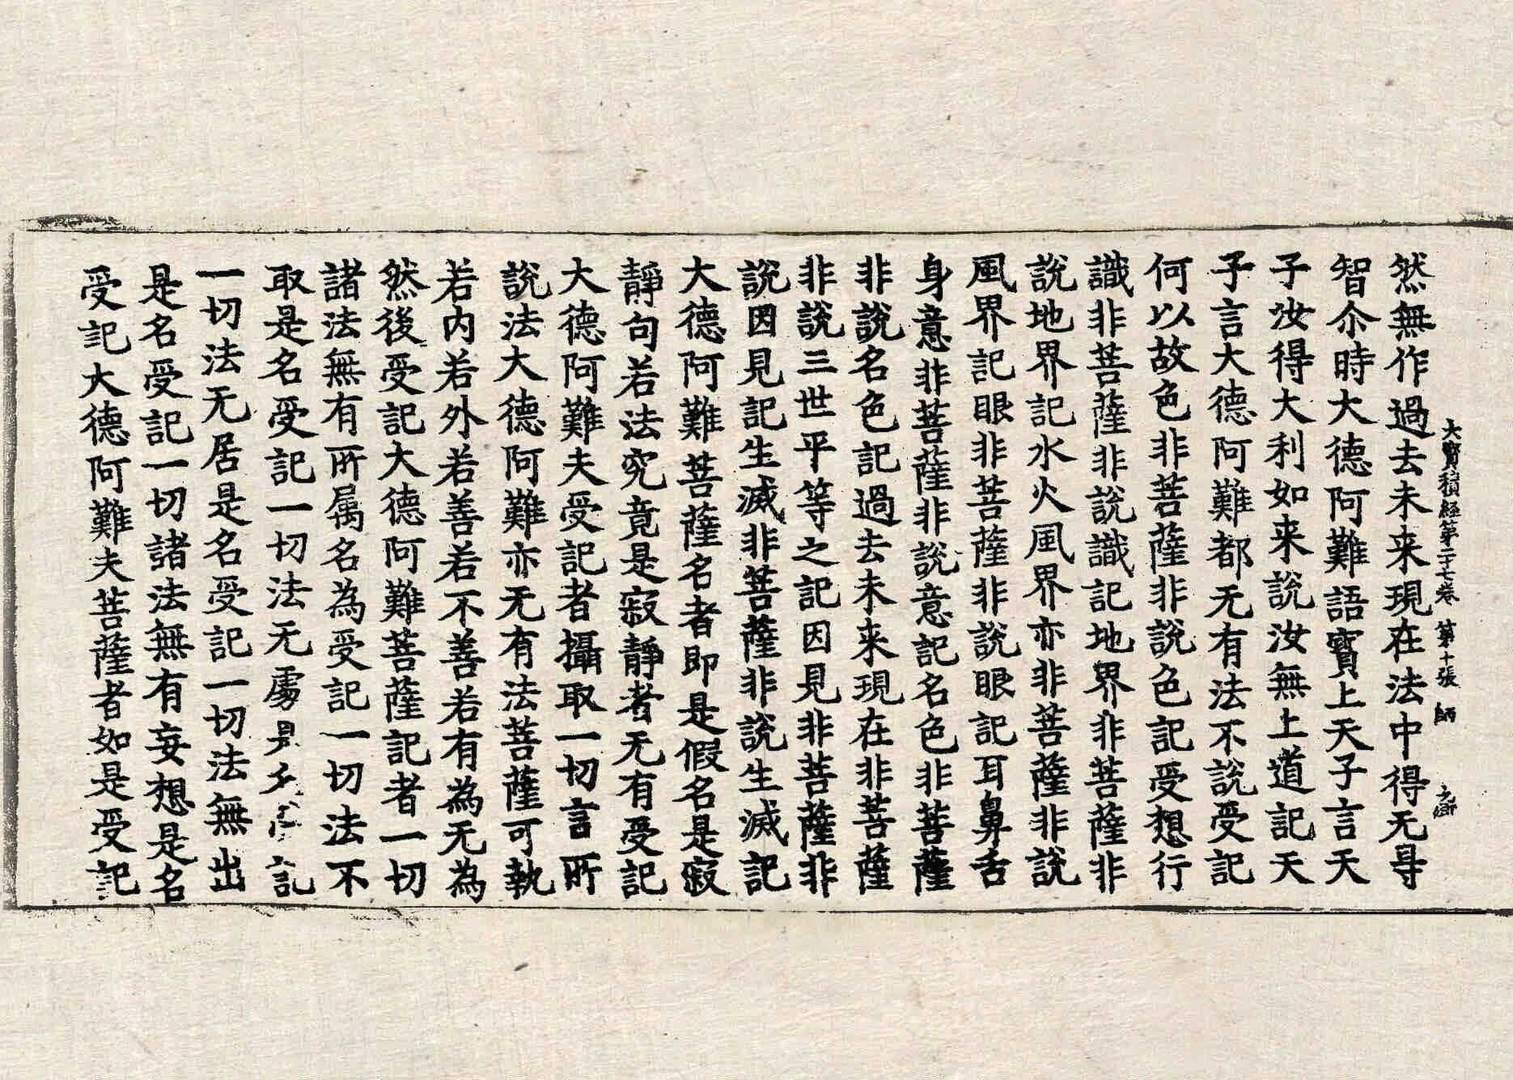 然無作過去未来現在法中得无㝵
大寶積経第二十七巻 第十張 師
智尒時大德阿難語寳上天子言天
子汝得大利如来說汝無上道記天
子言大德阿難都无有法不說受記
何以故色非菩薩非說色記受想行
識非菩薩非說識記地界非菩薩非
說地界記水火風界亦非菩薩非說
風界記眼非菩薩非說眼記耳鼻舌
身意非菩薩非說意記名色非菩薩
非說名色記過去未来現在非菩薩
非說三世平等之記因見非菩薩非
說因見記生滅非菩薩非說生滅記
大德阿難菩薩名者即是假名是寂
靜句若法究竟是寂靜者无有受記
大德阿難夫受記者攝取一切言所
說法大德阿難亦无有法菩薩可執
若内若外若善若不善若有為无為
然後受記大德阿難菩薩記者一切
諸法無有所属名為受記一切法不
取是名受記一切法无處是名受記
一切法无居是名受記一切法無出
是名受記一切諸法無有妄想是名
受記大德阿難夫菩薩者如是受記